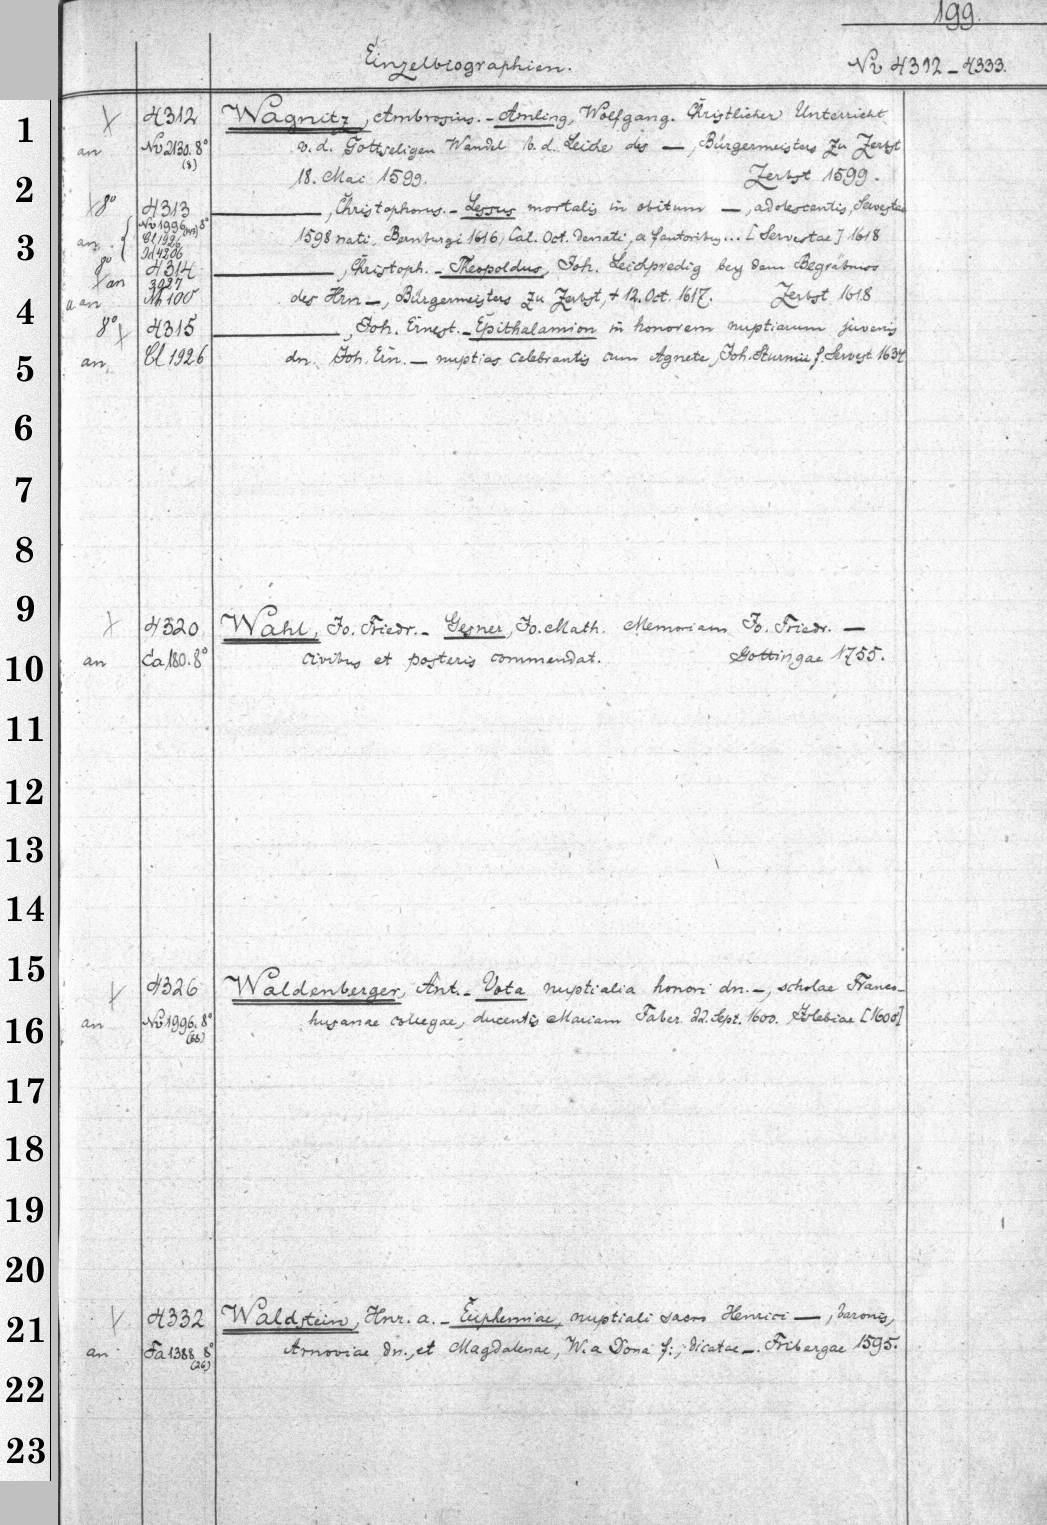 199.
Einzelbiographien. No 4312-4333.
1 4312 Wagnitz, Ambrosius. - Amling, Wolfgang. Christlicher Unterricht
an No 2130. 8° (8) v. d. Gottseligen Wandel b. d. Leiche des —, Bürgermeisters zu Zerbst
2 18. Mai 1599. Zerbst 1599.
8° 4313 —, Christophorus. - Lessus mortalis in obitum —, adolescentis, Servestae
3 an No 1996 8° Cl 1926 4206 1598 nati, Bernburgi 1616, Cal. Oct. denati, a fautoribus... [Servestae] 1618
8° an 4314 —, Christoph. - Theopoldus, Joh. Leichpredig bey dem Begräbnus
4 an 3927 100 des Hrn —, Bürgermeisters zu Zerbst, † 12. Oct. 1617. Zerbst 1618
8° 4315 —, Joh. Ernest. - Epithalamion in honorem nuptiarum juvenis
5 an Cl 1926 dn. Joh. Ern. — nuptias celebrantis cum Agnete, Joh. Sturmii f. Servest 1634
6
7
8
9 4320 Wahl, Jo. Friedr. - Gesner, Jo. Math. Memoriam Jo. Friedr. —
10 an Ca 180. 8° civibus et posteris commendat. Gottingae 1755.
11
12
13
14
15 4326 Waldenberger, Ant. - Vota nuptialia honori dn. —, scholae Franco-
16 an No 1996. 8° (66) husanae collegae, ducentis Mariam Faber 22. Sept. 1600. Islebiae [1600]
17
18
19
20
21 4332 Waldstein, Hnr. a. - Euphemiae nuptiali sacro Henrici —, baronis,
an Fa 1388 8° (26) Arnoviae dn., et Magdalenae, W. a Dona f., dicatae —. Fribergae 1595.
22
23